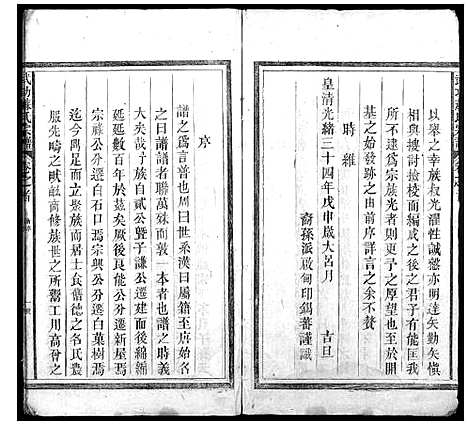 以舉之幸族叔光濯性誠慤亦明達矣勤矣慎矣
相與搜討撿校面編成之後之君子有能匡我
不逮建為宗族光者則更予之厚望也至於開
基始發跡之由前序詳言之余不贅
時維
皇清光緒三十四年戊申歲大呂月 吉旦
裔孫派啟甸印錫蕃謹識
序
譜之為言普也周曰世系漢曰屬籍至唐始名
大譜譜者聯萬殊而歸一本者也譜之時義
大矣哉予族自貳公暨子謙公遷建而後綿綿
延延數百年於茲厥後良能公分遷新屋焉
宗祿公分遷白石口焉宗興公分遷白菓樹焉
迄今閭左而立聚族而居士食舊德之名氏農
服先疇之畎畝商修族世之所鬻工用高曾之
武功蘇氏族譜 卷之首